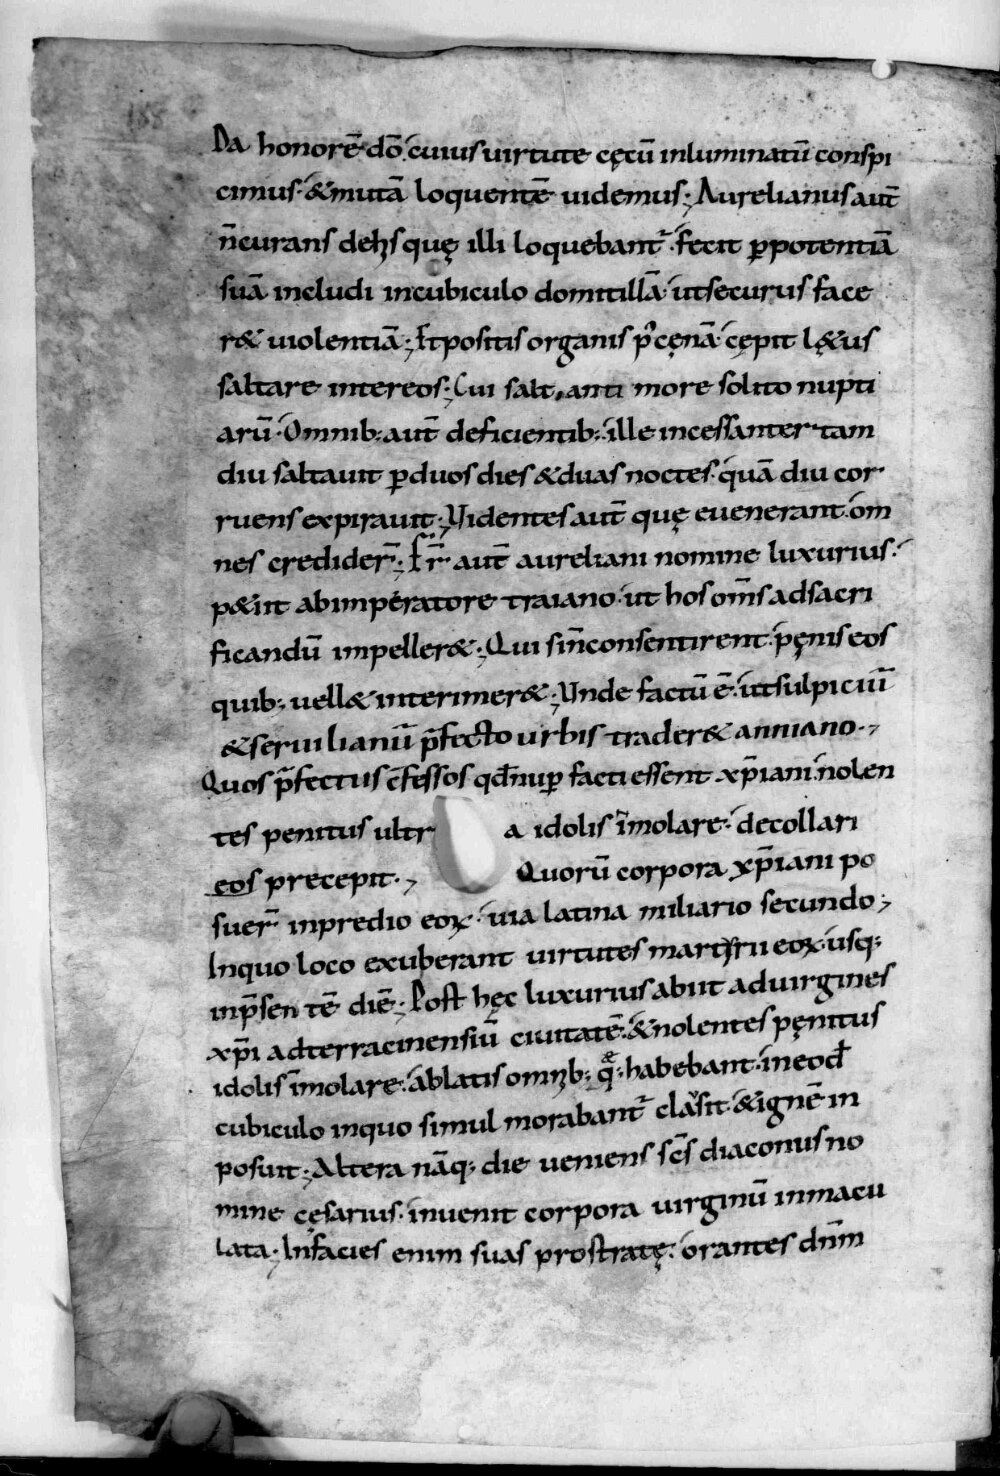 188
Da honorē dō. cuius uirtute cęcū inluminatū conspi
cimus. &mutā loquentē uidemus; Aurelianus aut̄
n̄curans dehis quę illi loquebant̄. fecit p̱potentiā
suā includi incubiculo domitillā. utsecurus face
r& uiolentiā; Etpositis organis p̄cęnā. cępit lę&us
saltare intereos; Cui saltanti more solito nupti
arū. Omnib; aut̄ deficientib;. ille incessanter tam
diu saltauit p̱duos dies &duas noctes. quā diu cor
ruens expirauit; Uidentes aut̄ quę euenerant. om
nes crediderr̄; Fr̄ aut̄ aureliani nomine luxurius.
p&iit abimperatore traiano. ut hos om̄s adsacri
ficandū impeller&; Qui sin̄consentirent. pęnis eos
quib; uell& interimer&; Unde factū ē. utsulpiciū
&seruilianū p̄fecto urbis trader& anniano.
Quos p̄fectus c̄fessos qd̄nup̱ facti essent xp̄iani. nolen
tes penitus ultra idolis īmolare. decollari
eos precepit. Quorū corpora xp̄iani po
suer̄ inpredio eoꝝ. uia latina miliario secundo;
Inquo loco exuberant uirtutes martyrii eoꝝ. usq;
inp̄sentē diē; Post hęc luxurius abiit aduirgines
xp̄i adterracinensiū ciuitatē. &nolentes pęnitus
idolis īmolare. ablatis omib; quę habebant. ineod̄
cubiculo inquo simul morabant̄ clasit. &ignē in
posuit; Altera nāq; die ueniens sc̄s diaconus no
mine cęsarius. inuenit corpora uirginū inmacu
lata; Infacies enim suas prostratę. orantes dn̄m